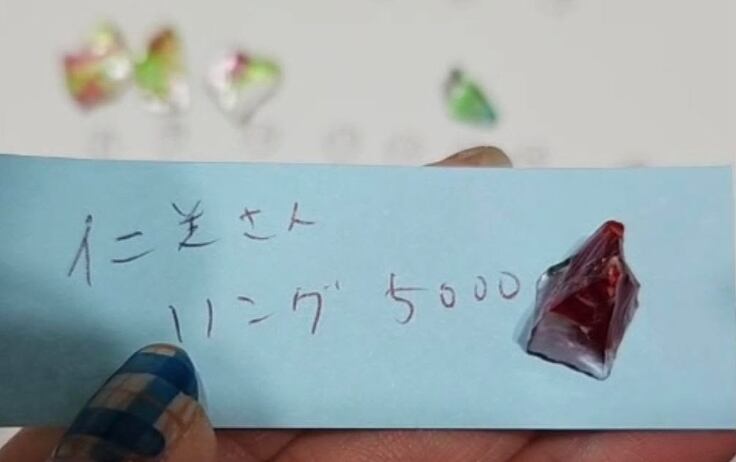 仁美さん
リング 5000